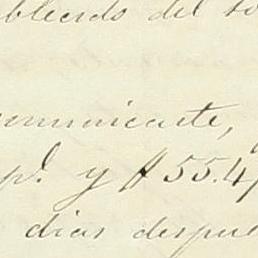 blecido del so
comunicante,
pl. y $ 55.4
dias despue